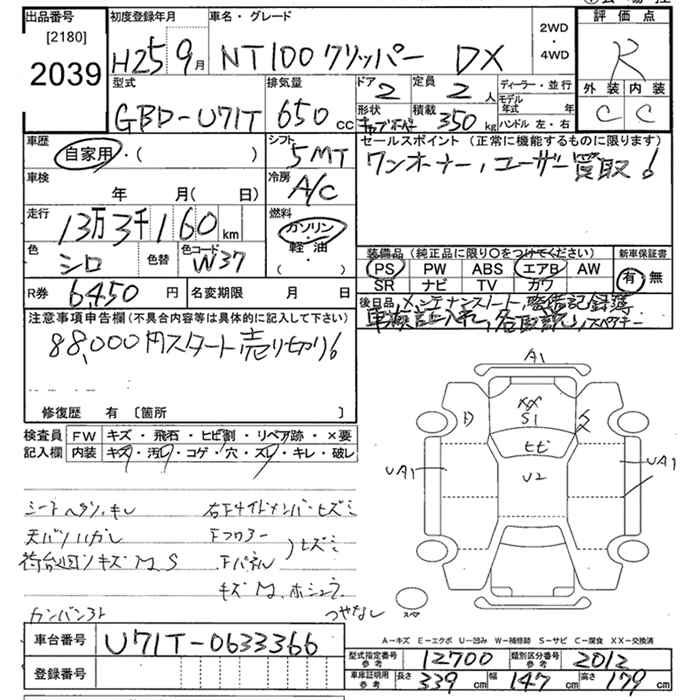 出品番号 [2180] 2039
初度登録年月 H25 9月
車名・グレード NT100クリッパー DX
2WD・4WD
評価点 R
型式 GBD-U71T
排気量 650 cc
ドア 2
定員 2人
形状
積載 350 kg
ディーラー・並行
モデル年式 年
ハンドル 左・右
外装 内装
C C
車歴 自家用・( )
シフト 5MT
セールスポイント(正常に機能するものに限ります)
ワンオーナー,ユーザー買取!
車検 年 月(日)
冷房 A/C
走行 13万3千160km
燃料 ガソリン・軽油・( )
色 シロ
色替
色コード W37
装備品(純正品に限り○をつけてください)
PS PW ABS エアB AW
SR ナビ TV カワ
新車保証書 有・無
R券 6450円
名変期限 月 日
後日品 メンテナンスノート,整備記録簿
車検証入れ,各取説,スペアキー
注意事項申告欄(不具合内容等は具体的に記入して下さい)
88,000円スタート売り切り!
修復歴 有 〔箇所 〕
検査員記入欄
FW キズ・飛石・ヒビ割・リペア跡・×要
内装 キズ・汚レ・コゲ・穴・スレ・キレ・破レ
A1
XX
S1
ヒビ
U2
UA1
UA1
スペア
右下サイドメンバーヒズミ
天バリハガレ
下フロアー
下パネル
ヒズミ
荷台凹ンキズM,S
キズM,ホシュウ
カンバンアト
つやなし
A-キズ E-エクボ U-凹み W-補修跡 S-サビ C-腐食 XX-交換済
車台番号 U71T-0633366
登録番号
型式指定番号 参考 12700
類別区分番号 参考 2012
車庫証明用 参考 長さ 339cm 幅 147cm 高さ 179cm